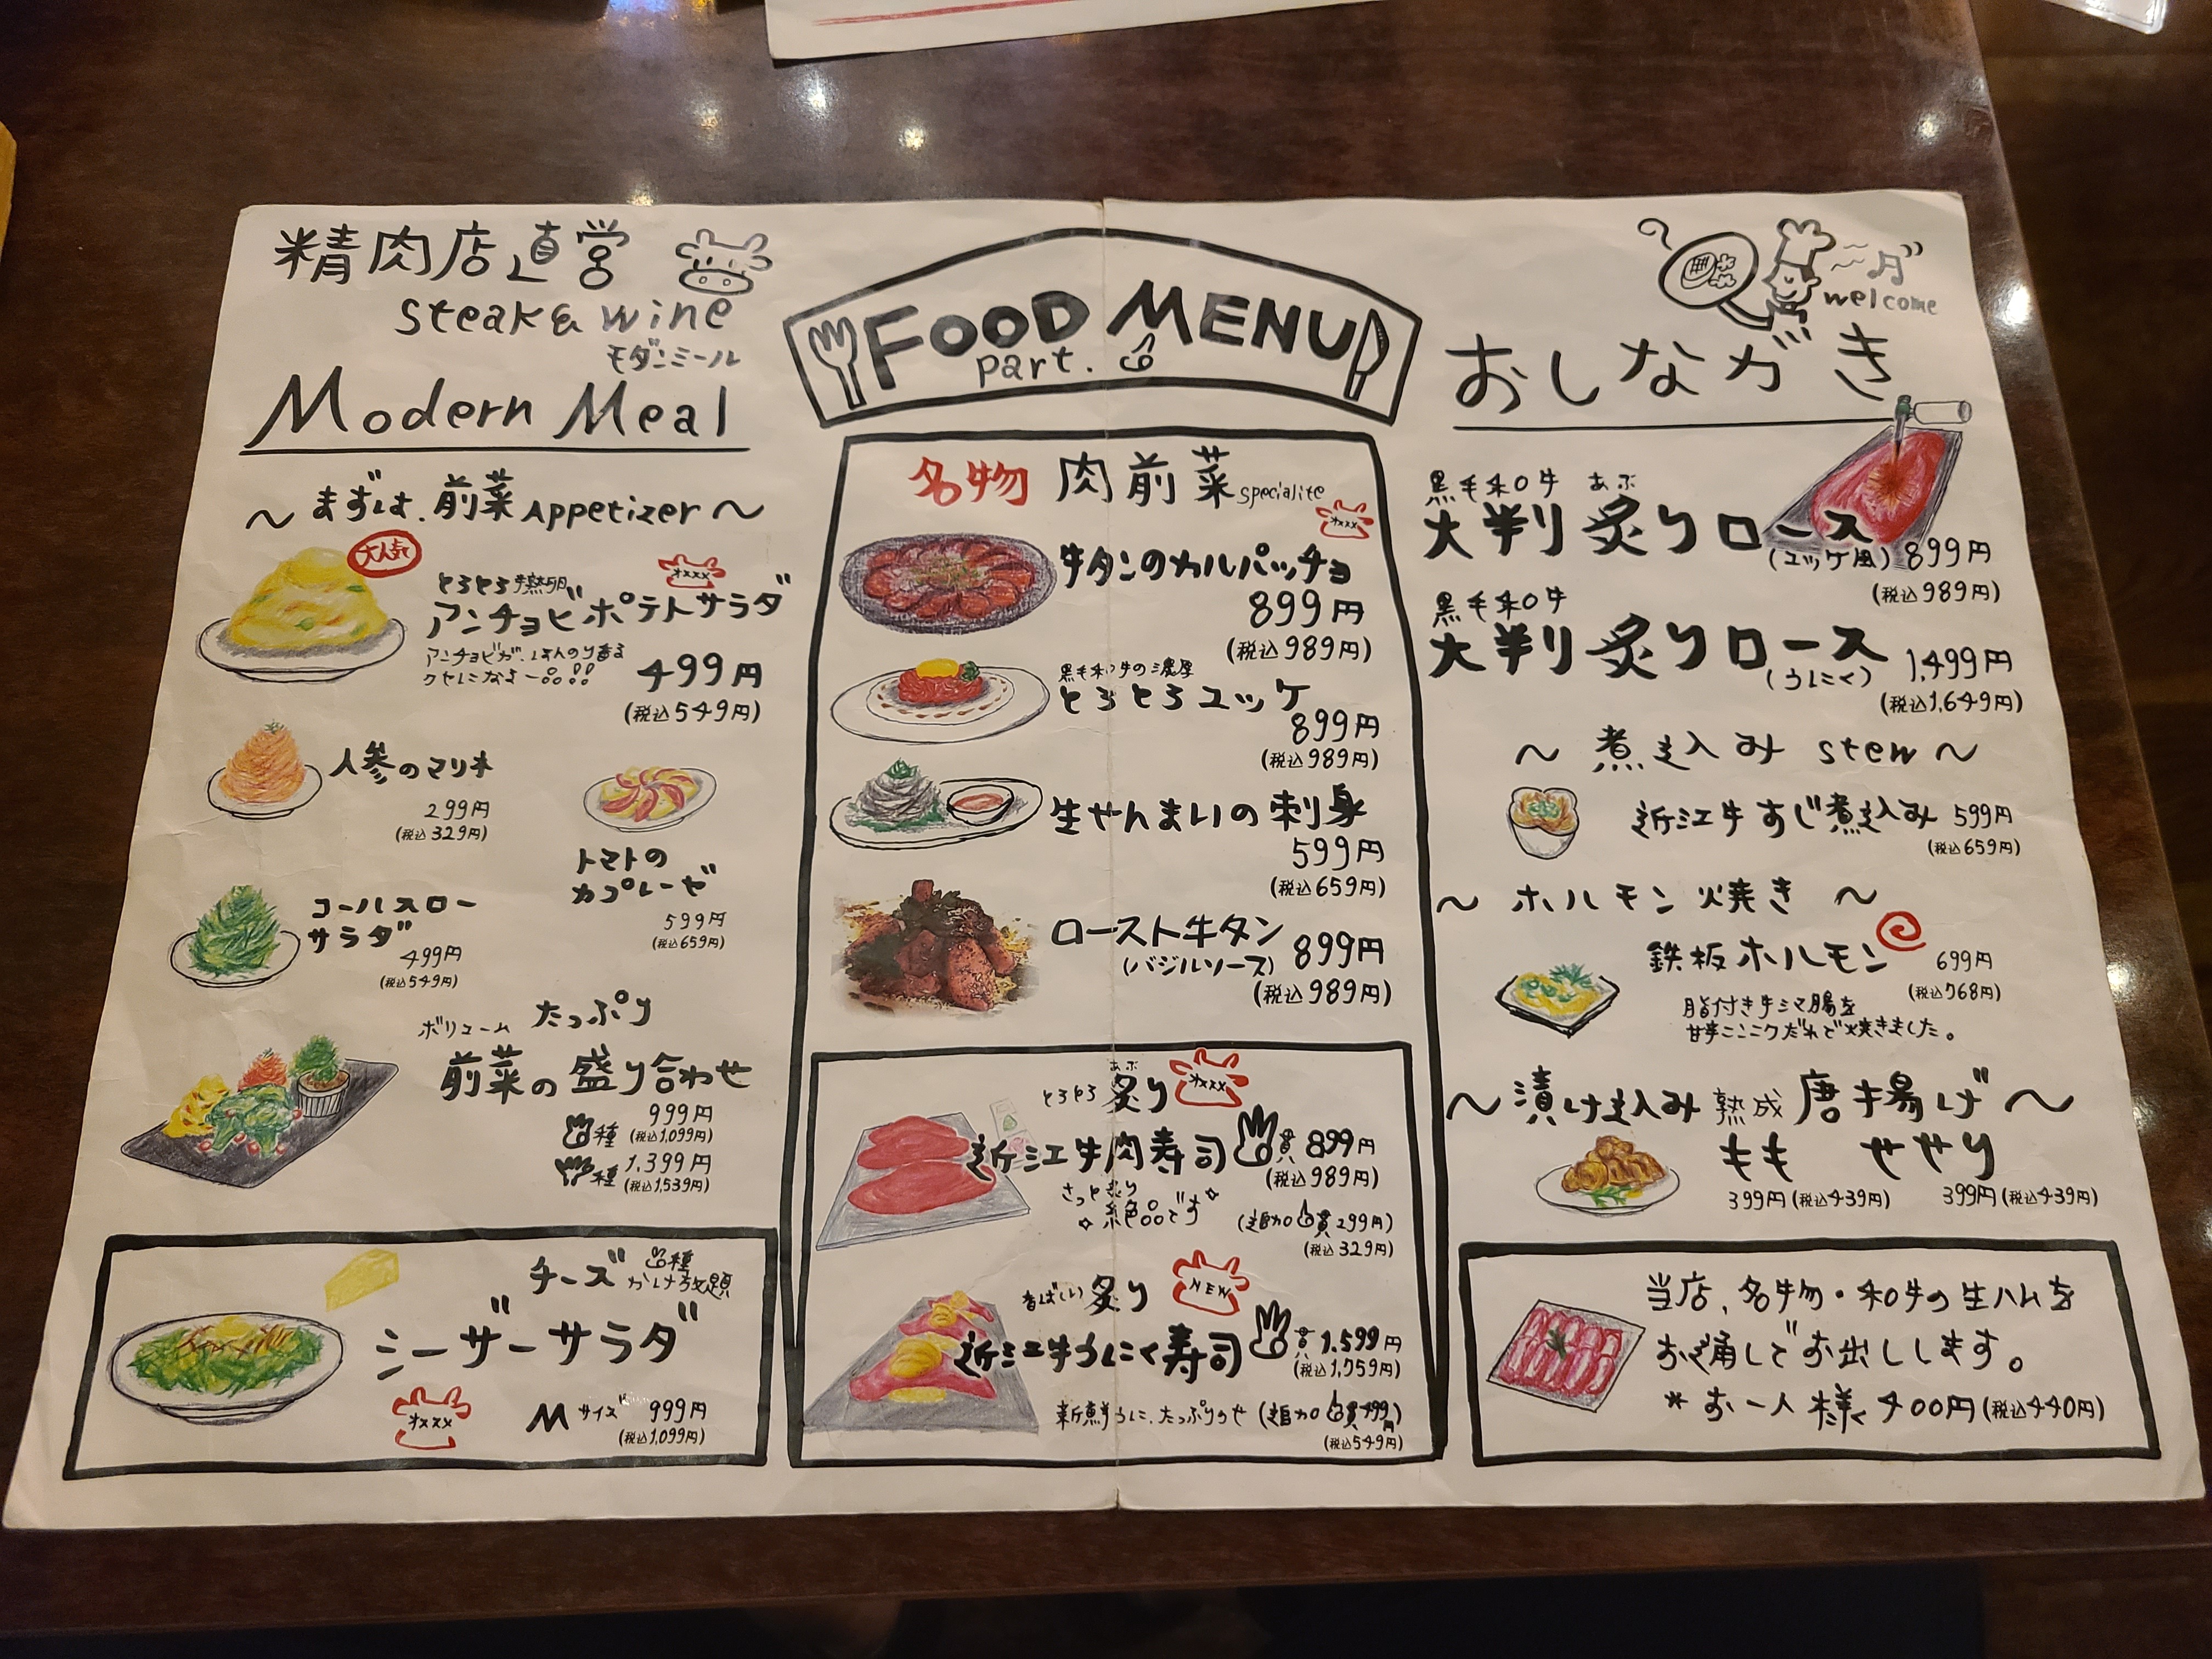 精肉店直営
steak & wine
モダンミール
Modern Meal
〜まずは、前菜 Appetizer〜
大人気
とろとろ半熟卵
アンチョビポテトサラダ
オススメ
アンチョビが、ほんのり香る
クセになるよー!!
499円
(税込549円)
人参のマリネ
299円
(税込329円)
トマトの
カプレーゼ
599円
(税込659円)
コールスロー
サラダ
499円
(税込549円)
ボリュームたっぷり
前菜の盛り合わせ
種 999円
(税込1,099円)
種 1,399円
(税込1,539円)
チーズ 種
かけ放題
シーザーサラダ
オススメ
Mサイズ 999円
(税込1,099円)
FOOD MENU
part.
名物 肉前菜 specialite
オススメ
牛タンのカルパッチョ
899円
(税込989円)
黒毛和牛の濃厚
とろとろユッケ
899円
(税込989円)
生せんまいの刺身
599円
(税込659円)
ロースト牛タン
(バジルソース) 899円
(税込989円)
あぶ
とろとろ 炙り
オススメ
近江牛肉寿司 貫 899円
(税込989円)
さっと炙り
絶品です
(追加 貫299円)
(税込329円)
香ばしい炙り
NEW
近江牛うにく寿司 貫 1,599円
(税込1,759円)
新鮮うに、たっぷりのせ (追加 貫499円)
(税込549円)
welcome
おしながき
黒毛和牛 あぶ
大判炙りロース
(ユッケ風) 899円
(税込989円)
黒毛和牛
大判炙りロース
(うにく) 1,499円
(税込1,649円)
〜煮込み stew〜
近江牛すじ煮込み 599円
(税込659円)
〜ホルモン焼き〜
鉄板ホルモン 699円
(税込768円)
脂付き牛シマ腸を
甘辛ニンニクだれで焼きました。
〜漬け込み熟成唐揚げ〜
もも せせり
399円(税込439円) 399円(税込439円)
当店、名物・和牛の生ハムを
お通しでお出しします。
*お一人様400円(税込440円)